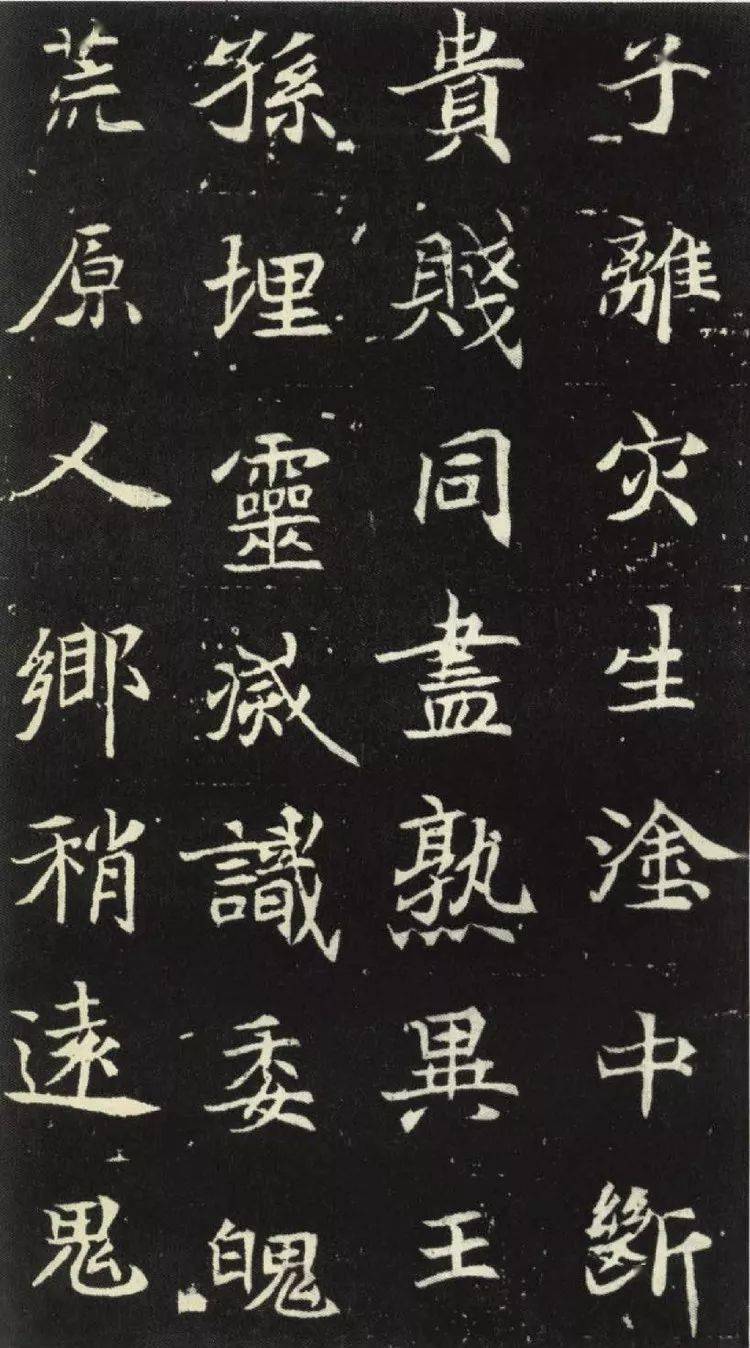 子離灾生塗中斷
貴賤同盡孰異王
孫埋靈滅識委魄
荒原人鄉稍遠鬼